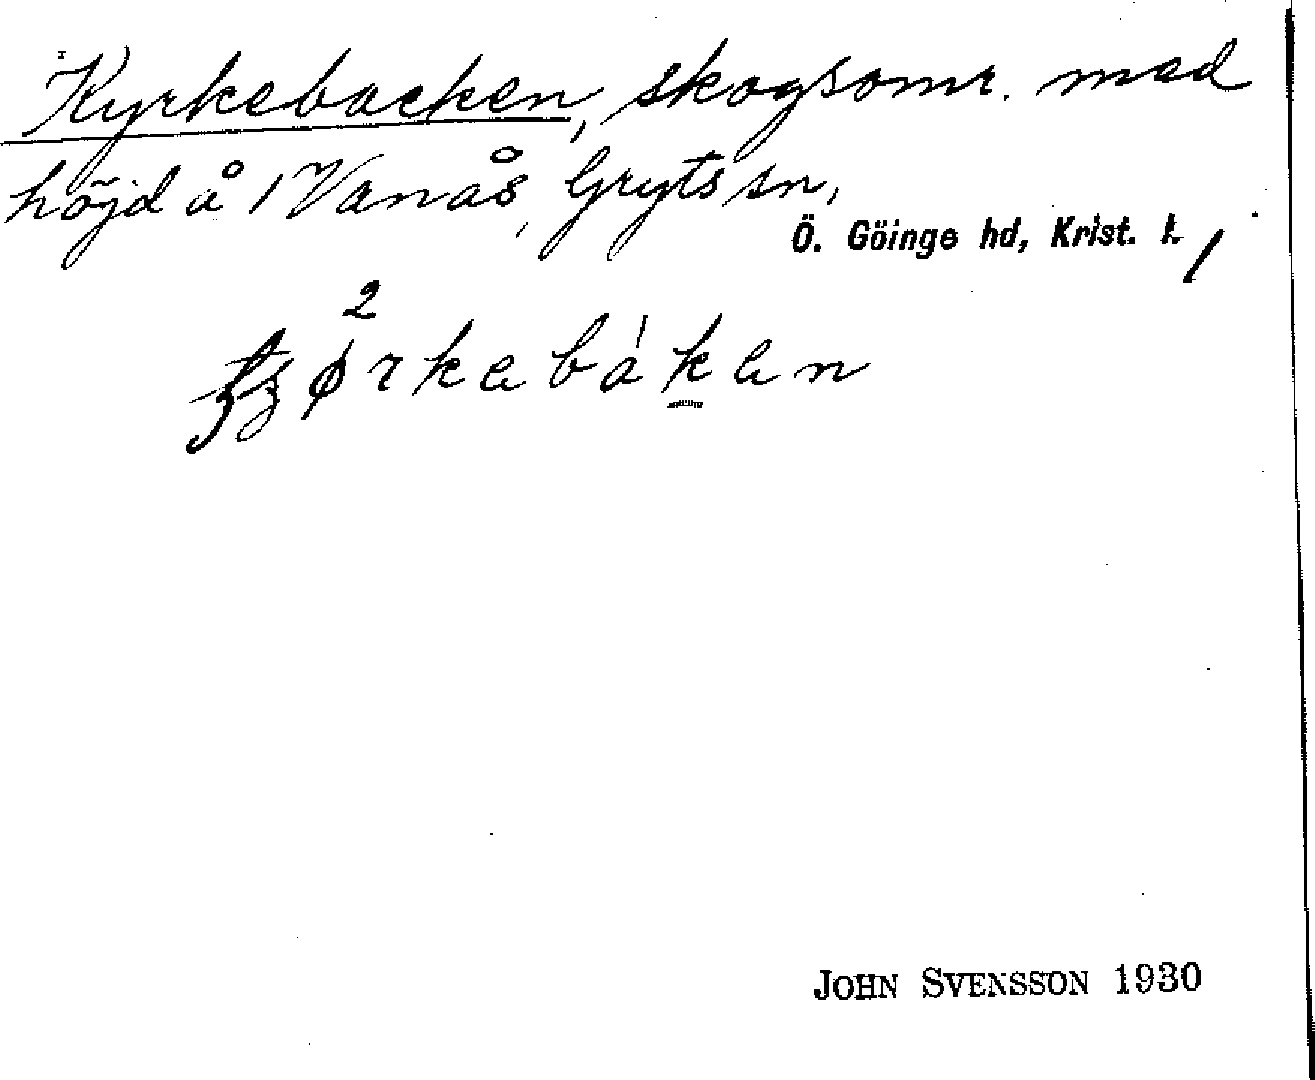 Kyrkebacken, skogsomr. med
höjd å 1 Vanås, Gryts sn,
Ö. Göinge hd, Krist. l.
JOHN SVENSSON 1930